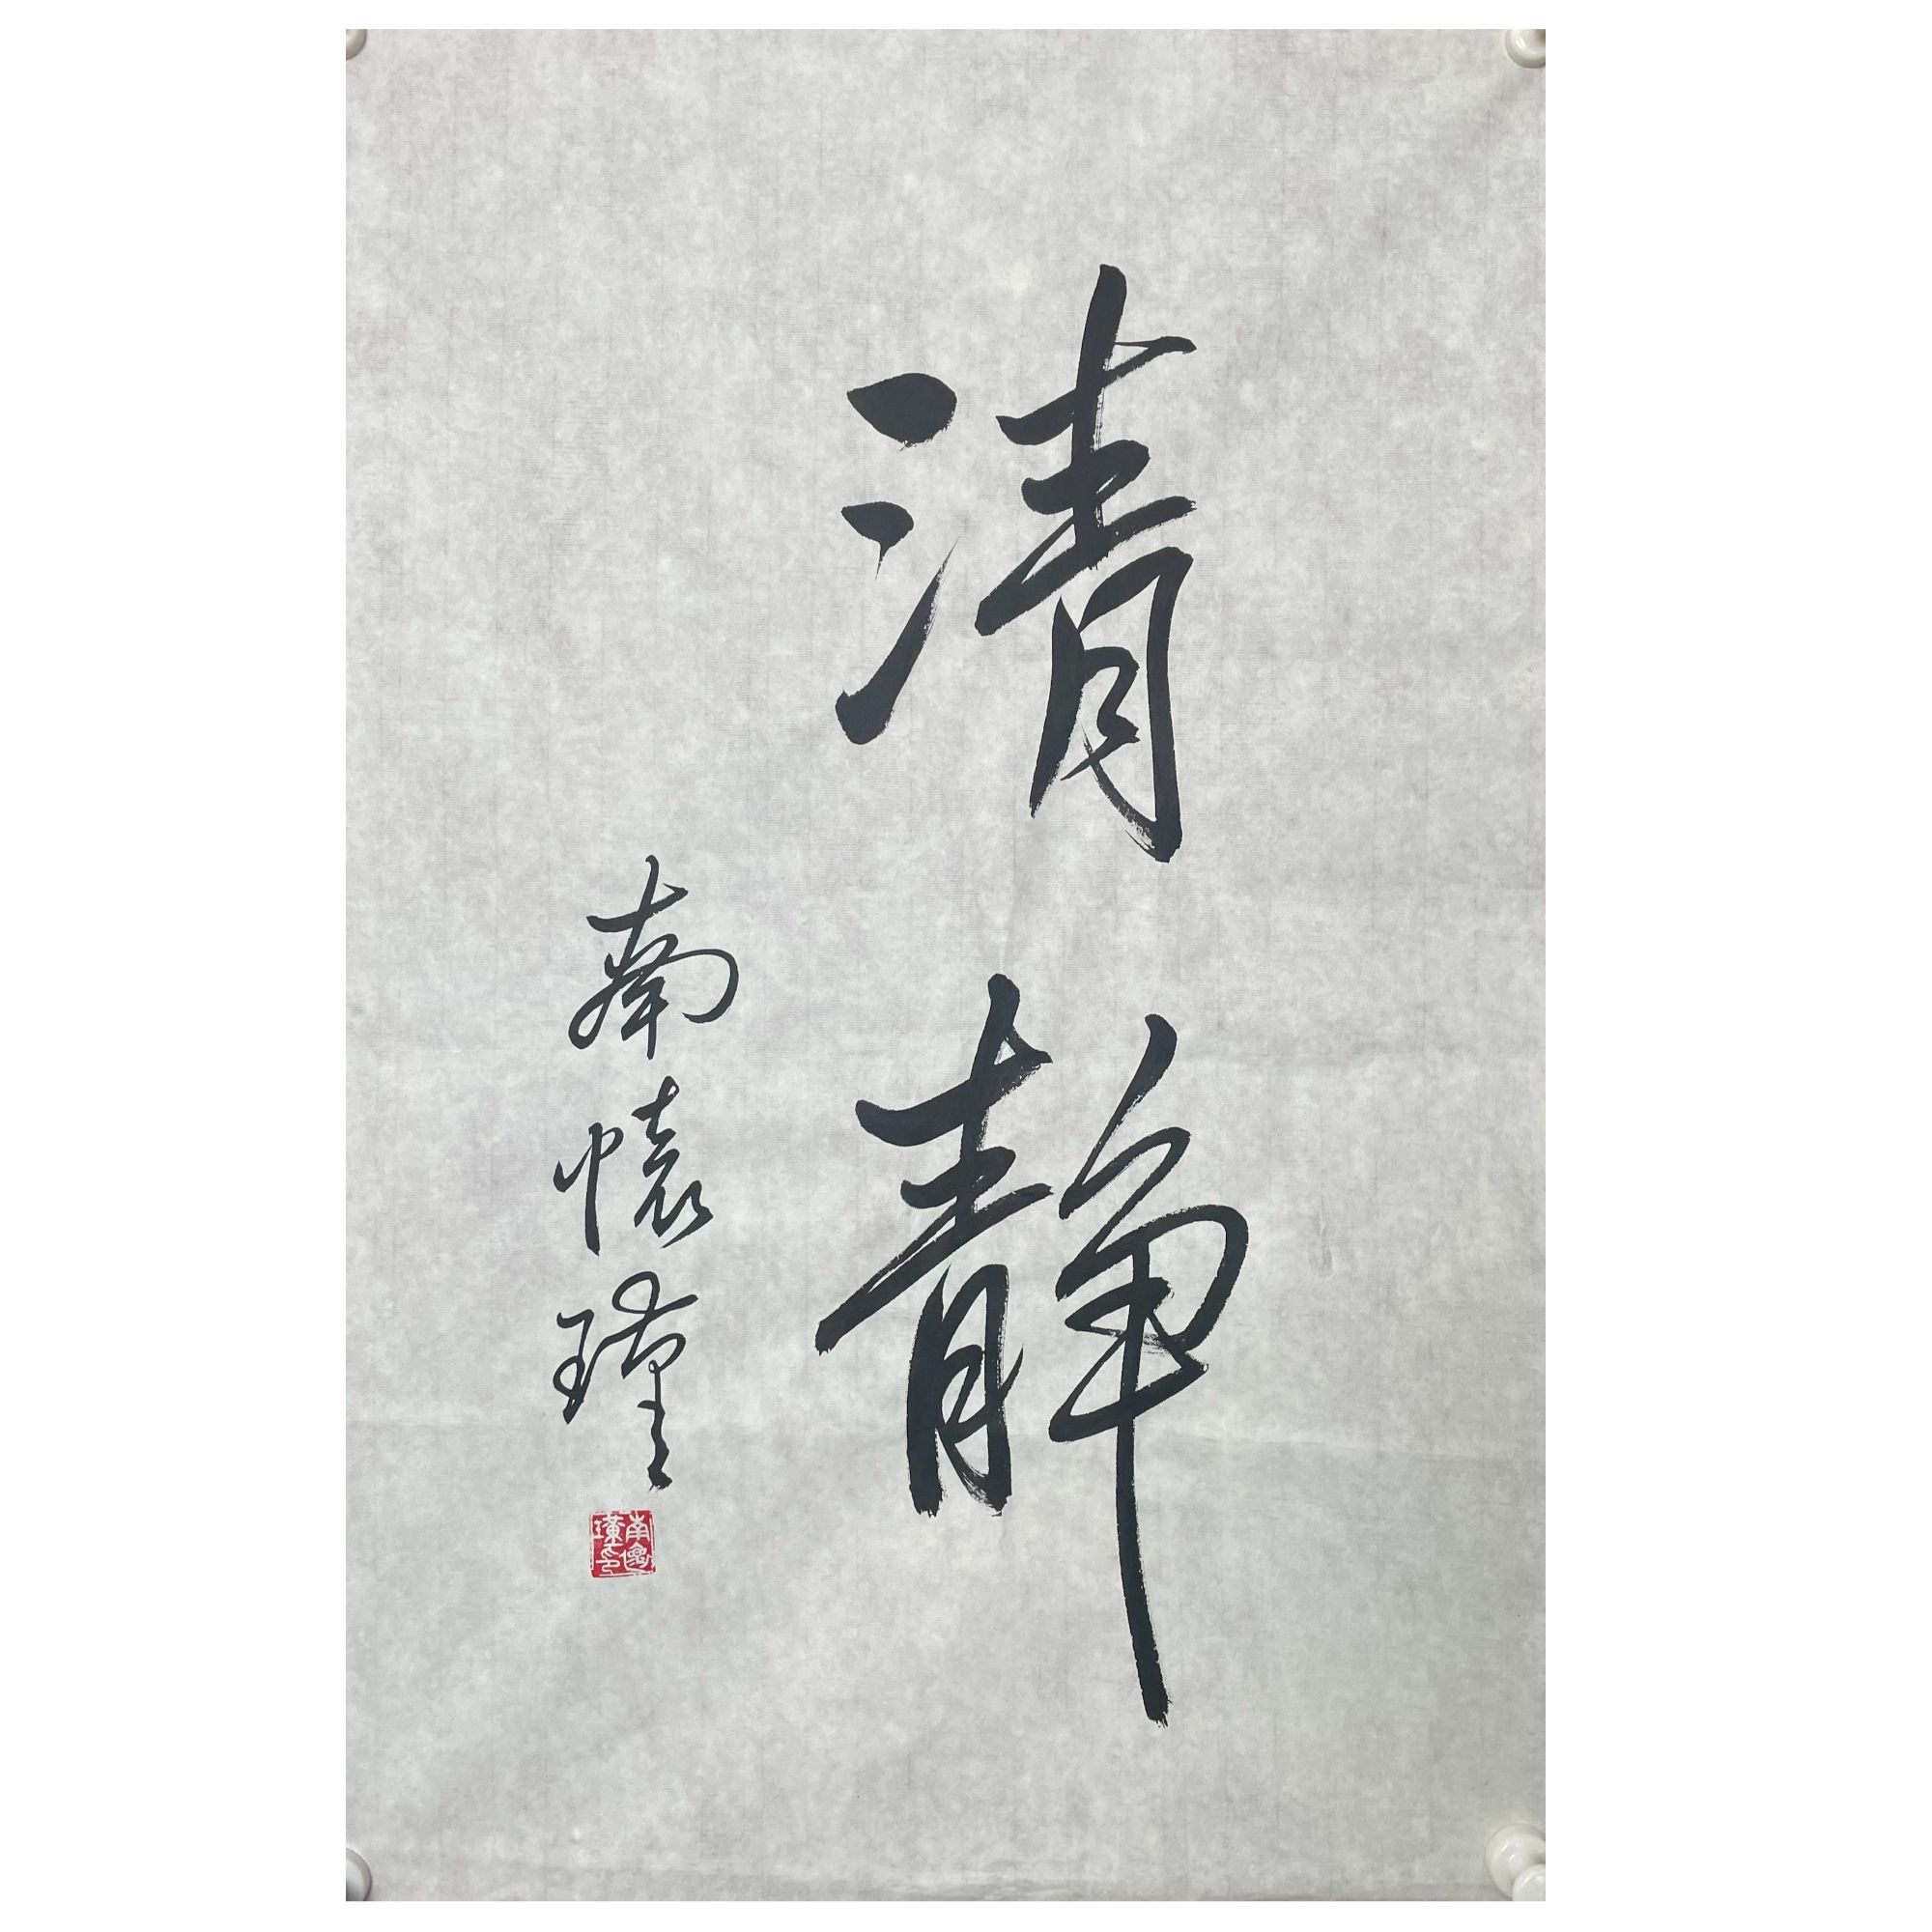 清靜
南懷瑾
南懷瑾印